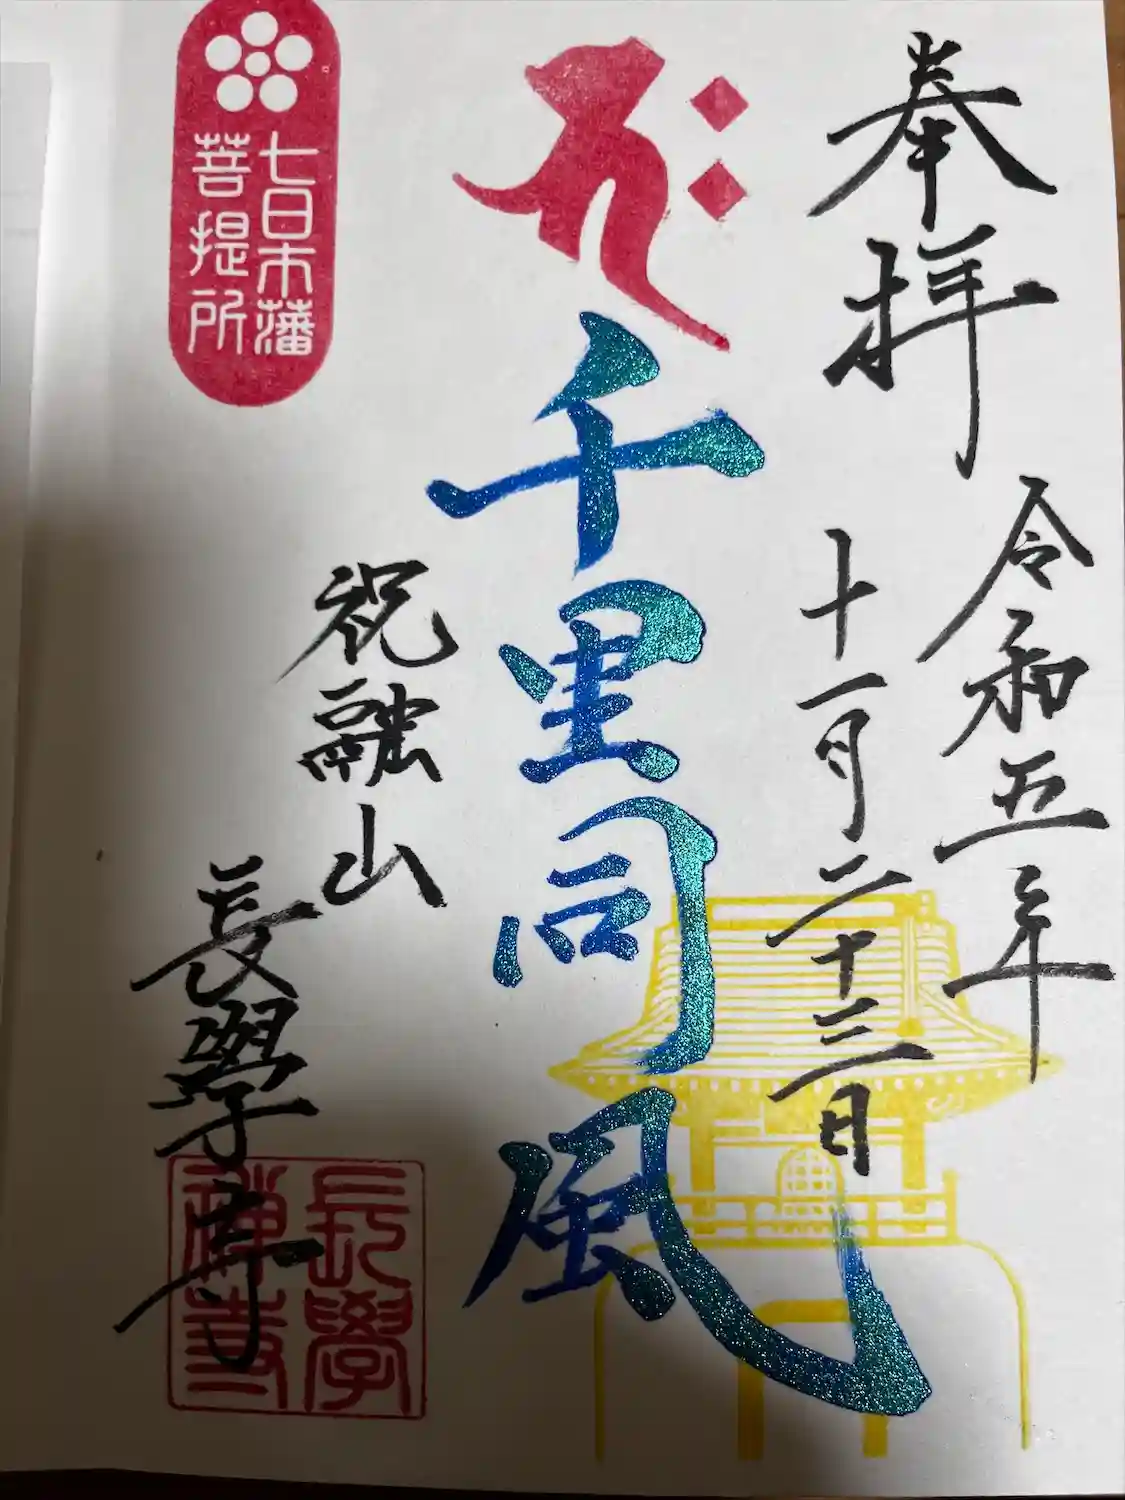 奉拝
令和五年
十一月二十三日
千里同風
祝融山
長學寺
七日市藩
菩提所
長學
禅寺